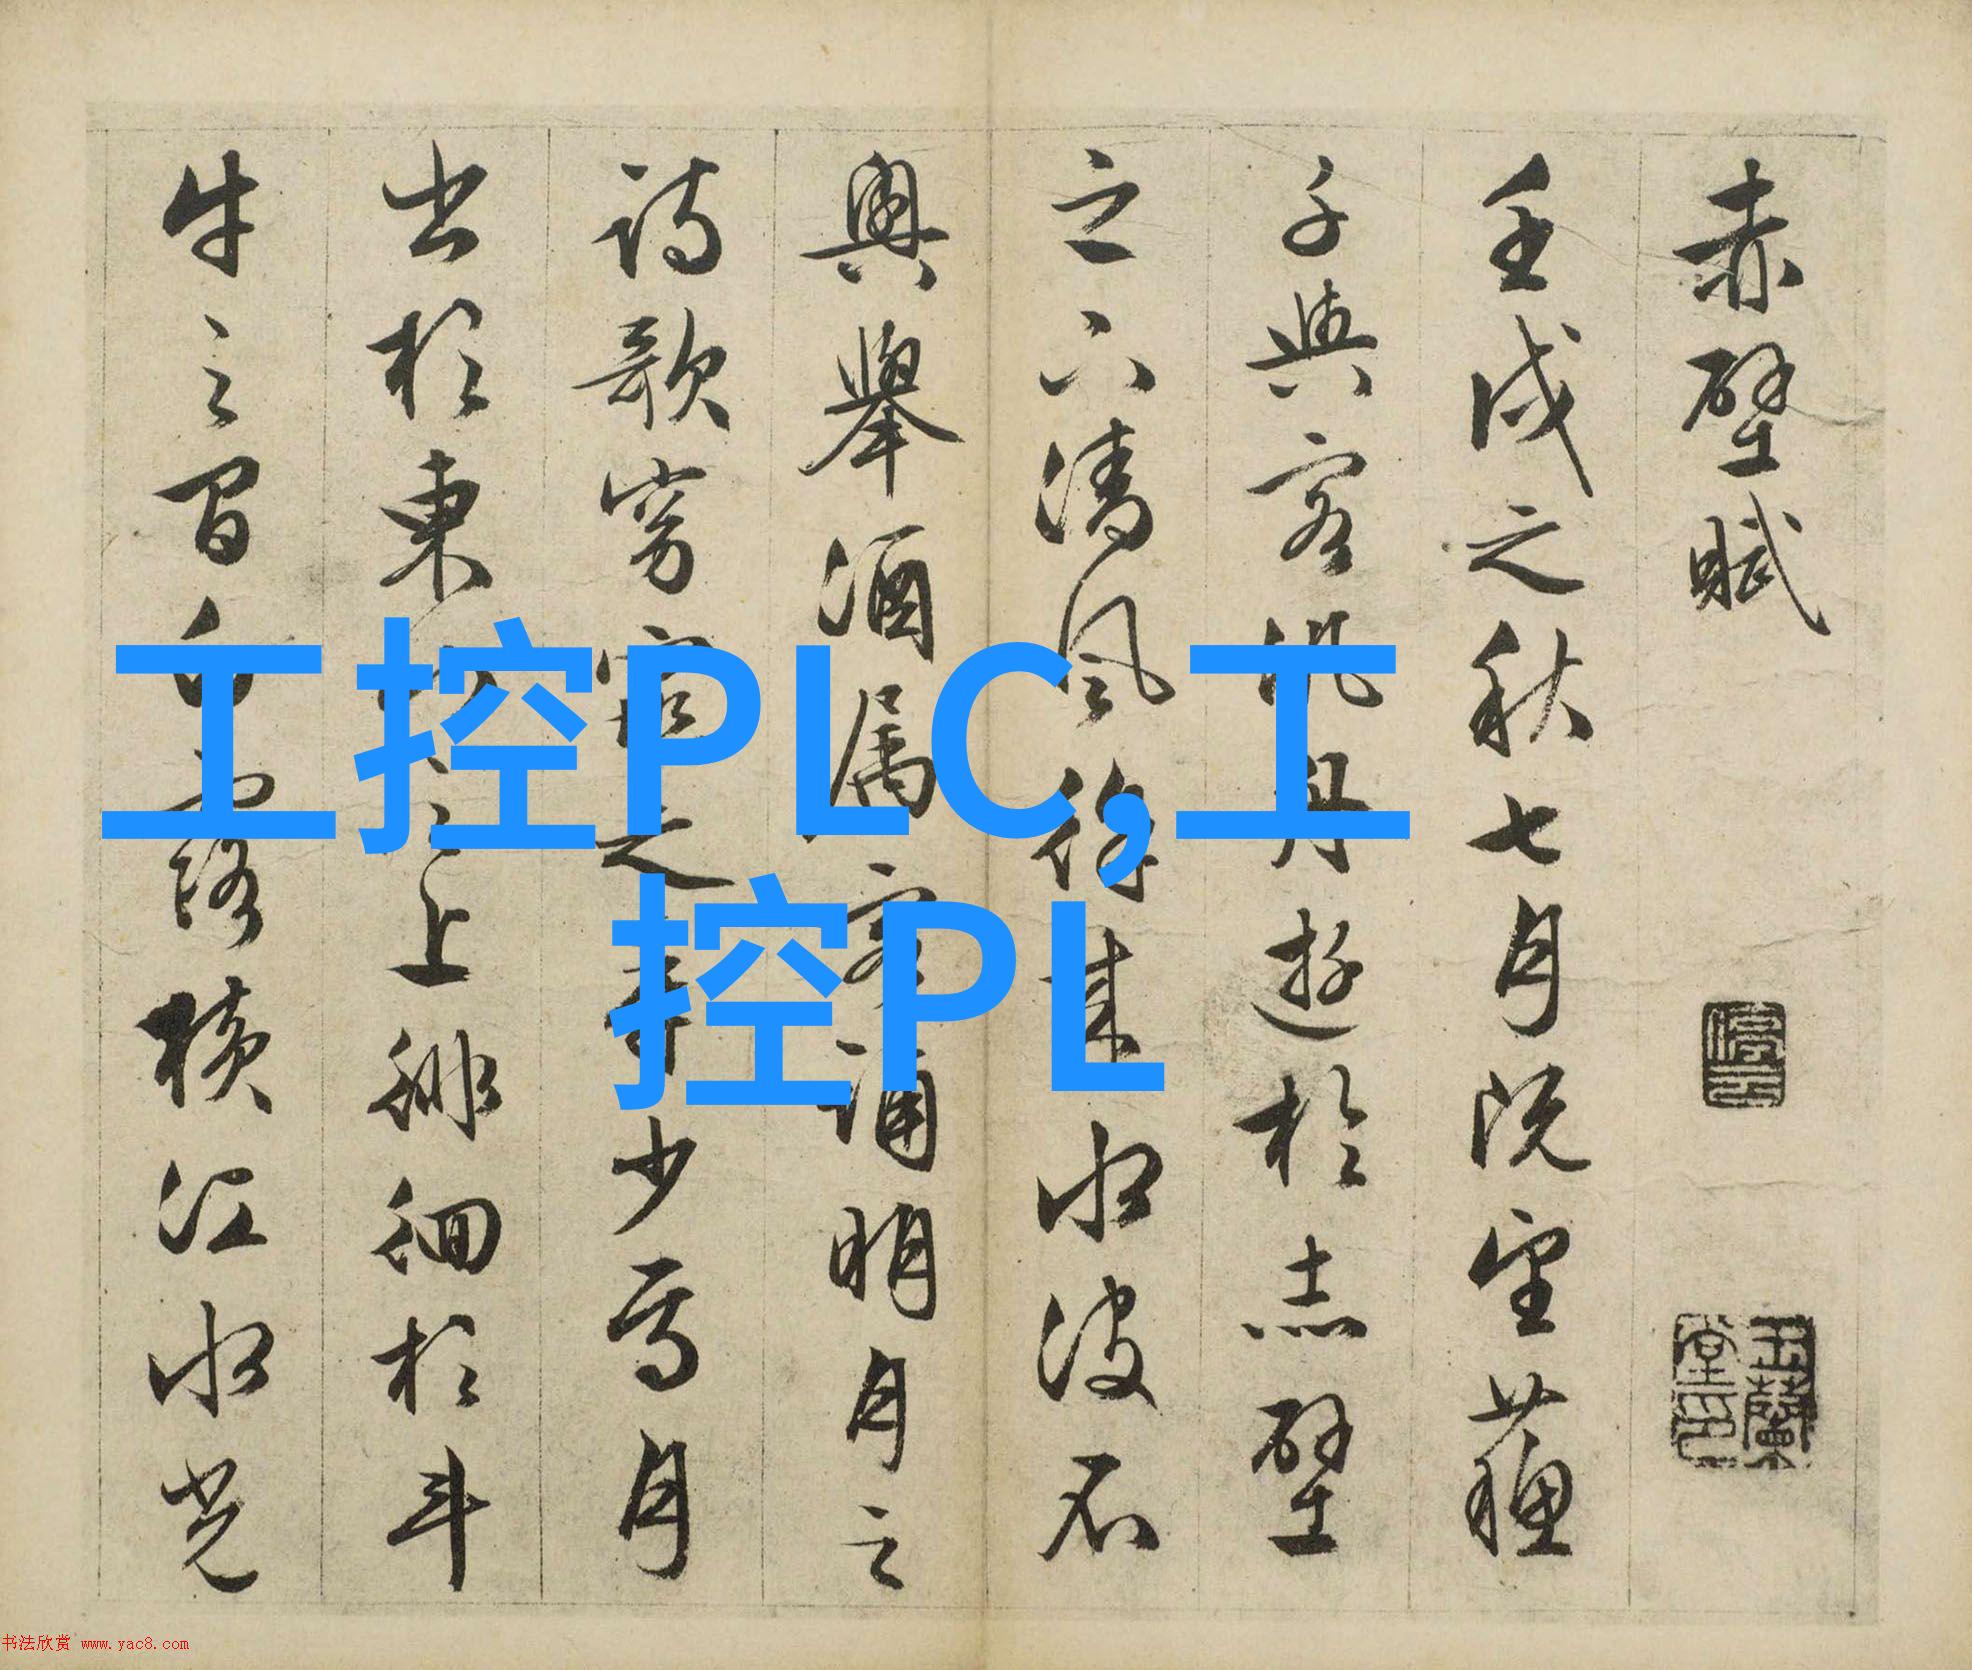 赤壁賦
壬戌之秋七月既望蘓
子與客泛舟遊於赤壁
之下清風徐來水波不
興舉酒属客誦明月之
詩歌窈窕之章少焉月
出於東山之上徘徊於斗
牛之間白露橫江水光
停云
玉蘭堂印
工控PLC,工
控PL
书法欣赏 www.yac8.com